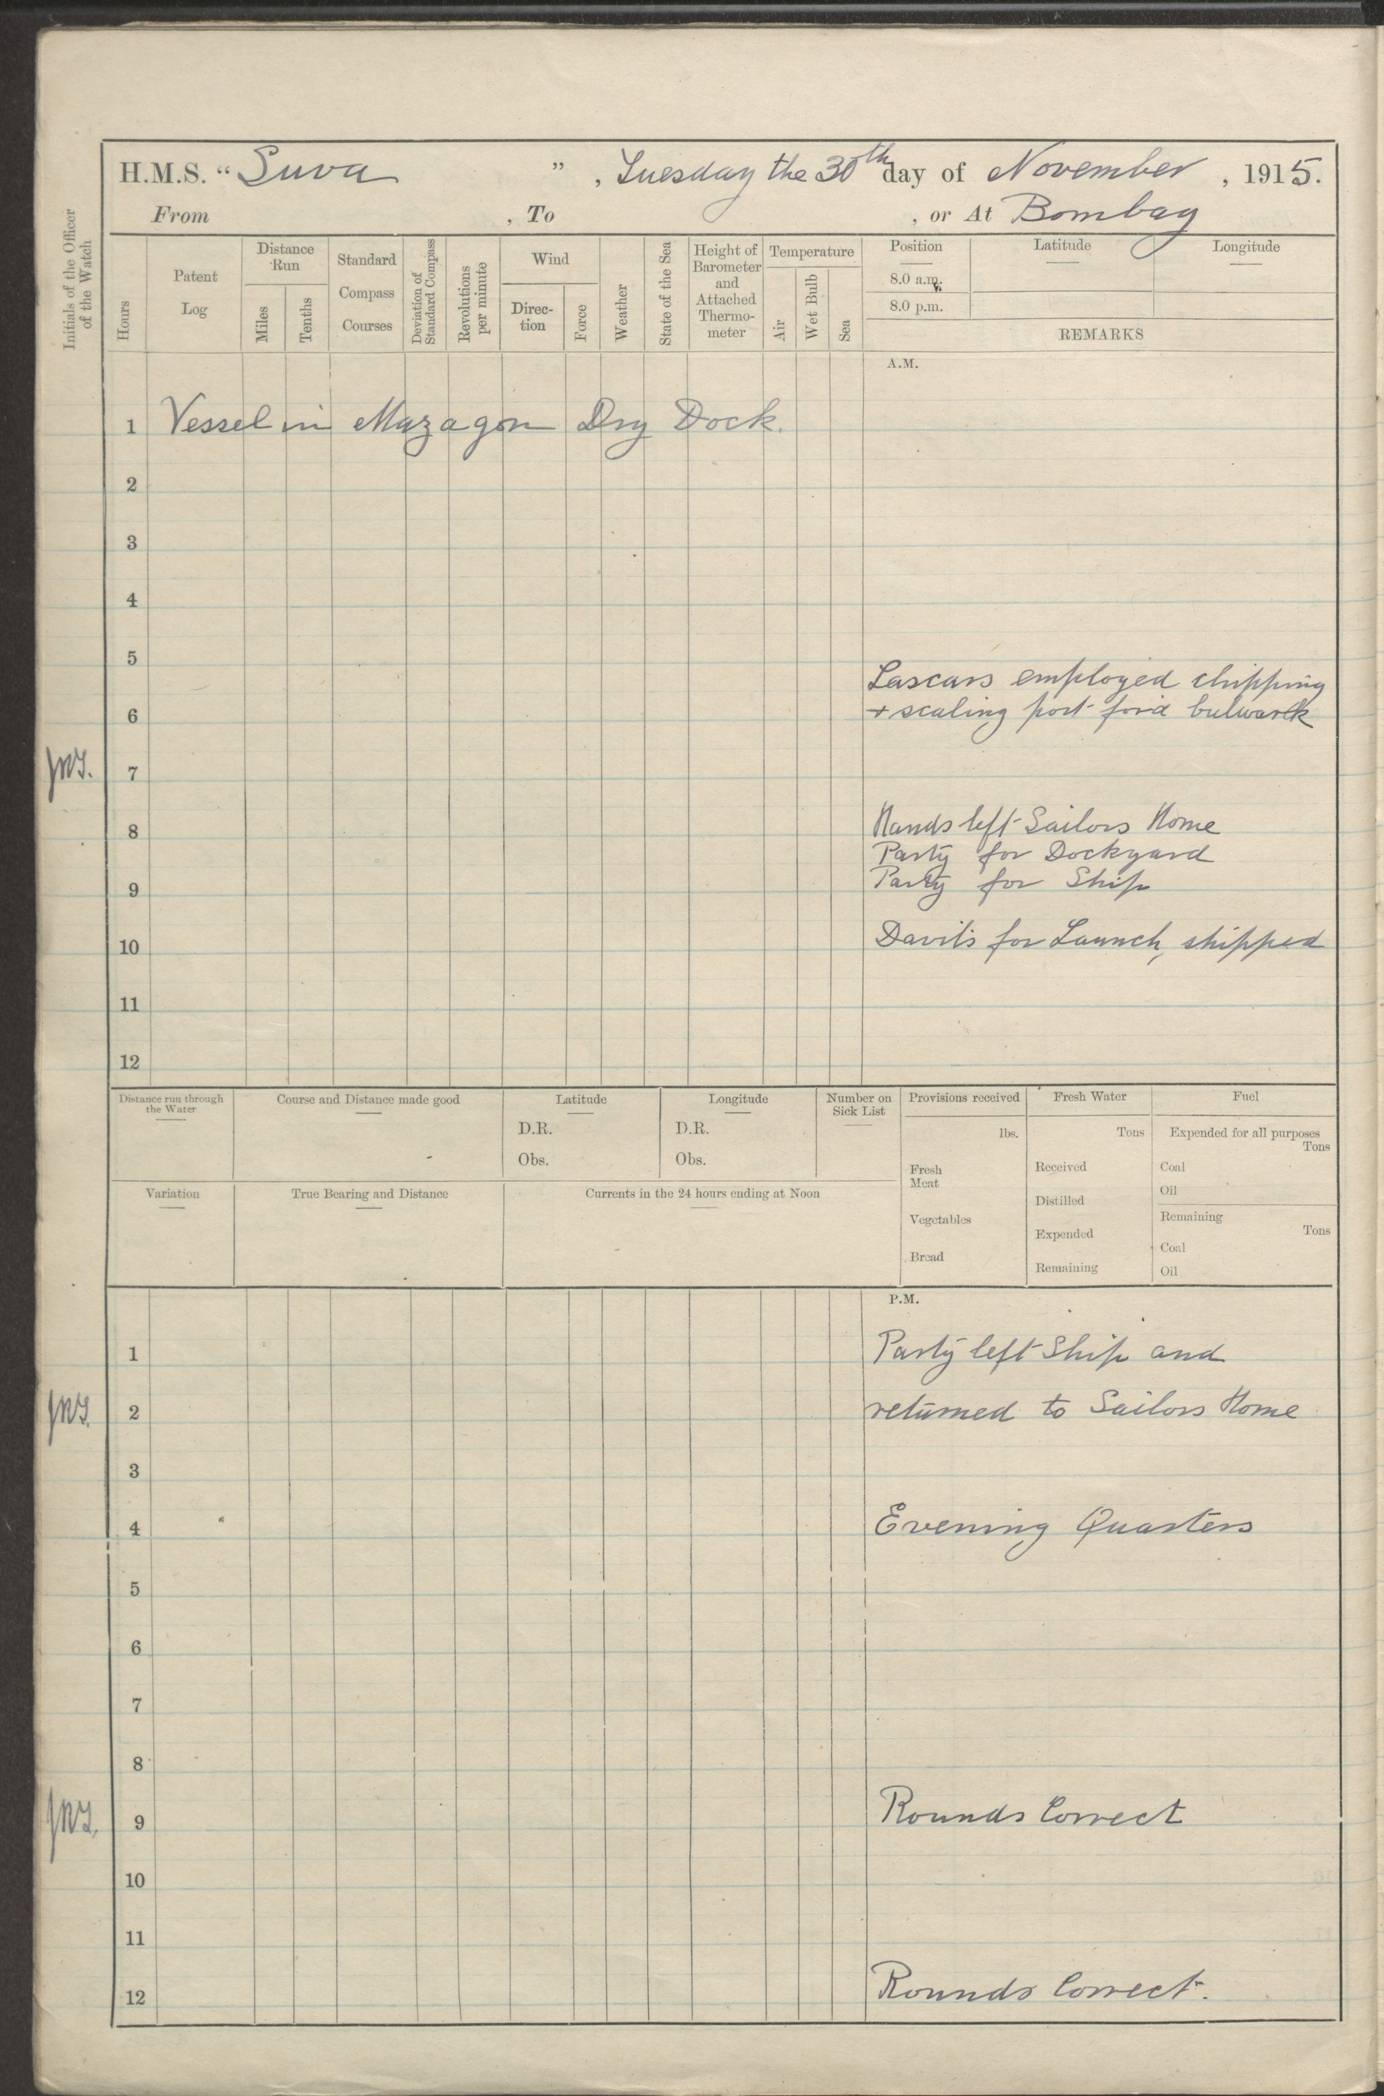 H.M.S. "Suva", Tuesday the 30th day of November, 1915.
From , To , or At Bombay
Initials of the Officer of the Watch
Hours
Patent Log
Distance Run
Miles
Tenths
Standard Compass Courses
Deviation of Standard Compass
Revolutions per minute
Wind
Direc-tion
Force
Weather
State of the Sea
Height of Barometer and Attached Thermo-meter
Temperature
Air
Wet Bulb
Sea
Position Latitude Longitude
8.0 a.m.
8.0 p.m.
REMARKS
A.M.
1 Vessel in Mazagon Dry Dock.
2
3
4
5
Lascars employed chipping
6 + scaling port for'd bulwark
7
8 Hands left Sailors Home
Party for Dockyard
9 Party for Ship
10 Davits for Launch, shipped
11
12
Distance run through the Water
Course and Distance made good
Latitude
D.R.
Obs.
Longitude
D.R.
Obs.
Number on Sick List
Variation
True Bearing and Distance
Currents in the 24 hours ending at Noon
Provisions received
lbs.
Fresh Meat
Vegetables
Bread
Fresh Water
Tons
Received
Distilled
Expended
Remaining
Fuel
Expended for all purposes
Tons
Coal
Oil
Remaining
Tons
Coal
Oil
P.M.
1 Party left Ship and
2 returned to Sailors Home
3
4 Evening Quarters
5
6
7
8
9 Rounds Correct
10
11
12 Rounds Correct.